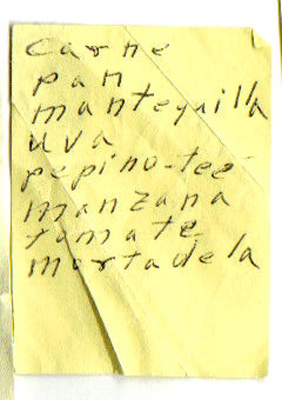 carne
pan
mantequilla
uva
pepino-tee
manzana
tomate
mortadela